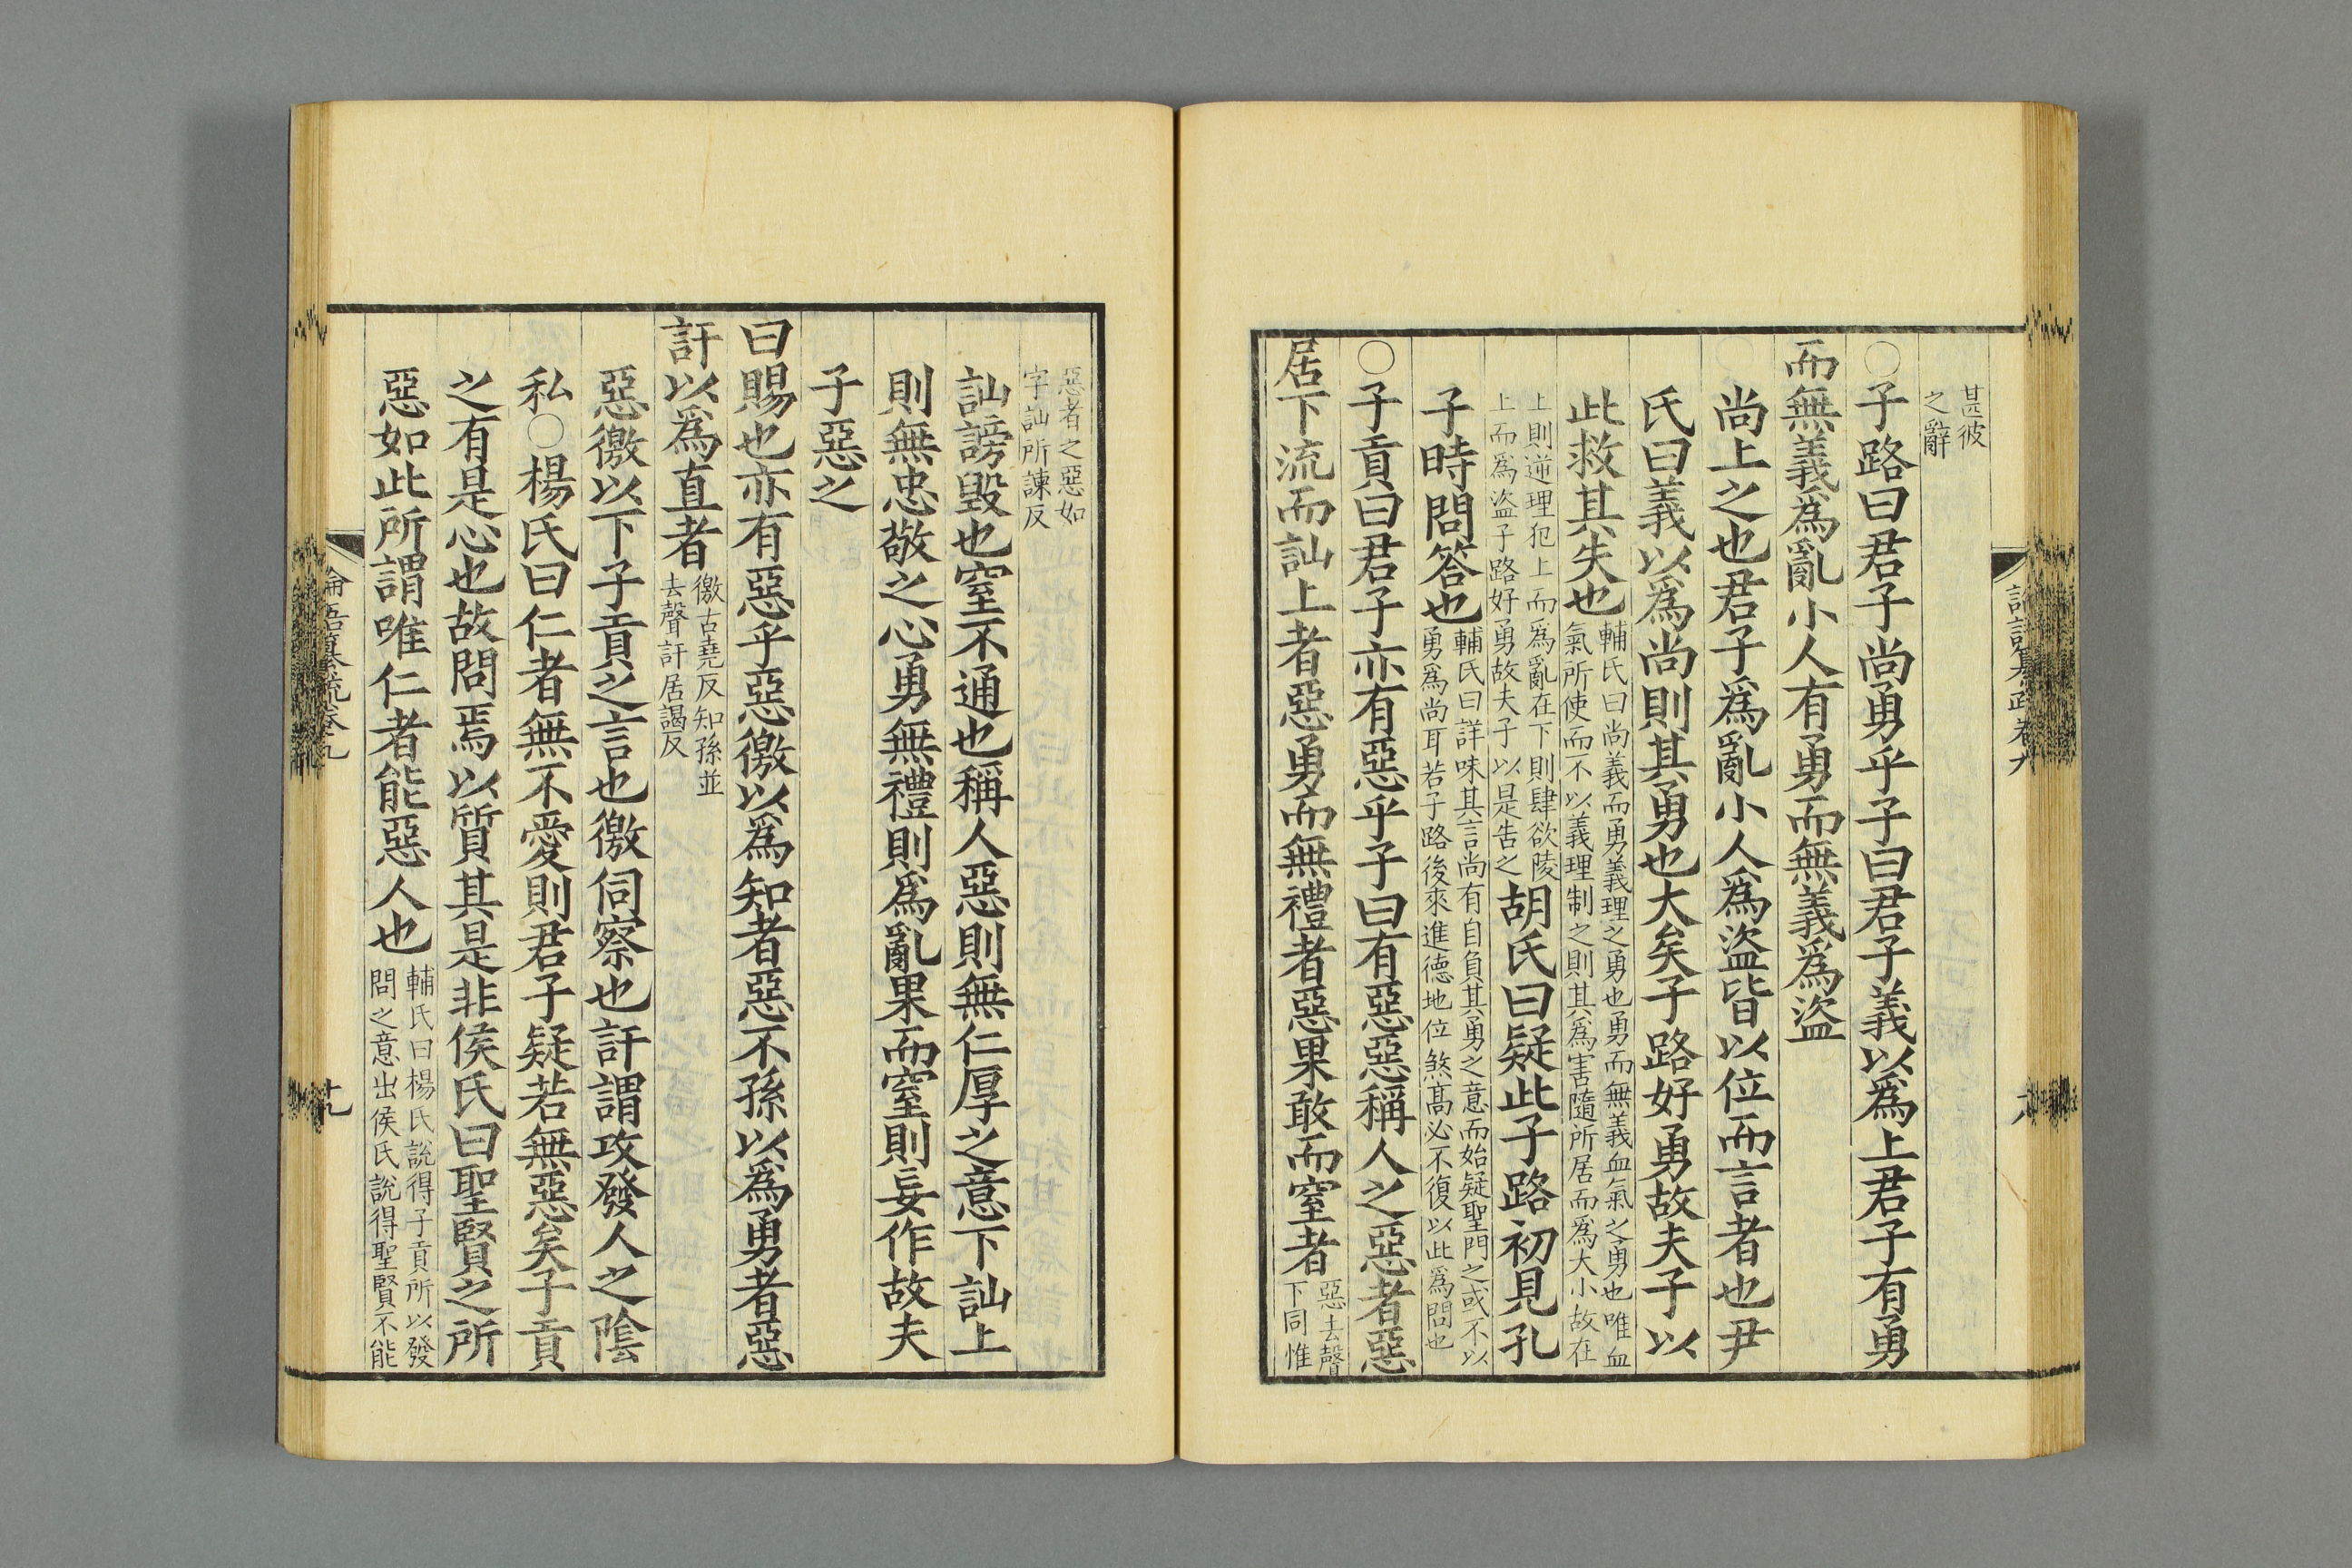 甚彼
之辭
○子路曰君子尚勇乎子曰君子義以爲上君子有勇
而無義爲亂小人有勇而無義爲盜
尚上之也君子爲亂小人爲盜皆以位而言者也尹
氏曰義以爲尚則其勇也大矣子路好勇故夫子以
此救其失也
輔氏曰尚義而勇義理之勇也勇而無義血氣之勇也唯血
氣所使而不以義理制之則其爲害隨所居而爲大小故在
上則逆理犯上而爲亂在下則肆欲陵
上而爲盜子路好勇故夫子以是告之
胡氏曰疑此子路初見孔
子時問答也
輔氏曰詳味其言尚有自負其勇之意而始疑聖門之或不以
勇爲尚耳若子路後來進德地位煞高必不復以此爲問也
○子貢曰君子亦有惡乎子曰有惡惡稱人之惡者惡
居下流而訕上者惡勇而無禮者惡果敢而窒者
惡去聲
下同惟
惡者之惡如
字訕所諫反
訕謗毀也窒不通也稱人惡則無仁厚之意下訕上
則無忠敬之心勇無禮則爲亂果而窒則妄作故夫
子惡之
曰賜也亦有惡乎惡徼以爲知者惡不孫以爲勇者惡
訐以爲直者
徼古堯反知孫並
去聲訐居謁反
惡徼以下子貢之言也徼伺察也訐謂攻發人之陰
私○楊氏曰仁者無不愛則君子疑若無惡矣子貢
之有是心也故問焉以質其是非侯氏曰聖賢之所
惡如此所謂唯仁者能惡人也
輔氏曰楊氏說得子貢所以發
問之意出侯氏說得聖賢不能